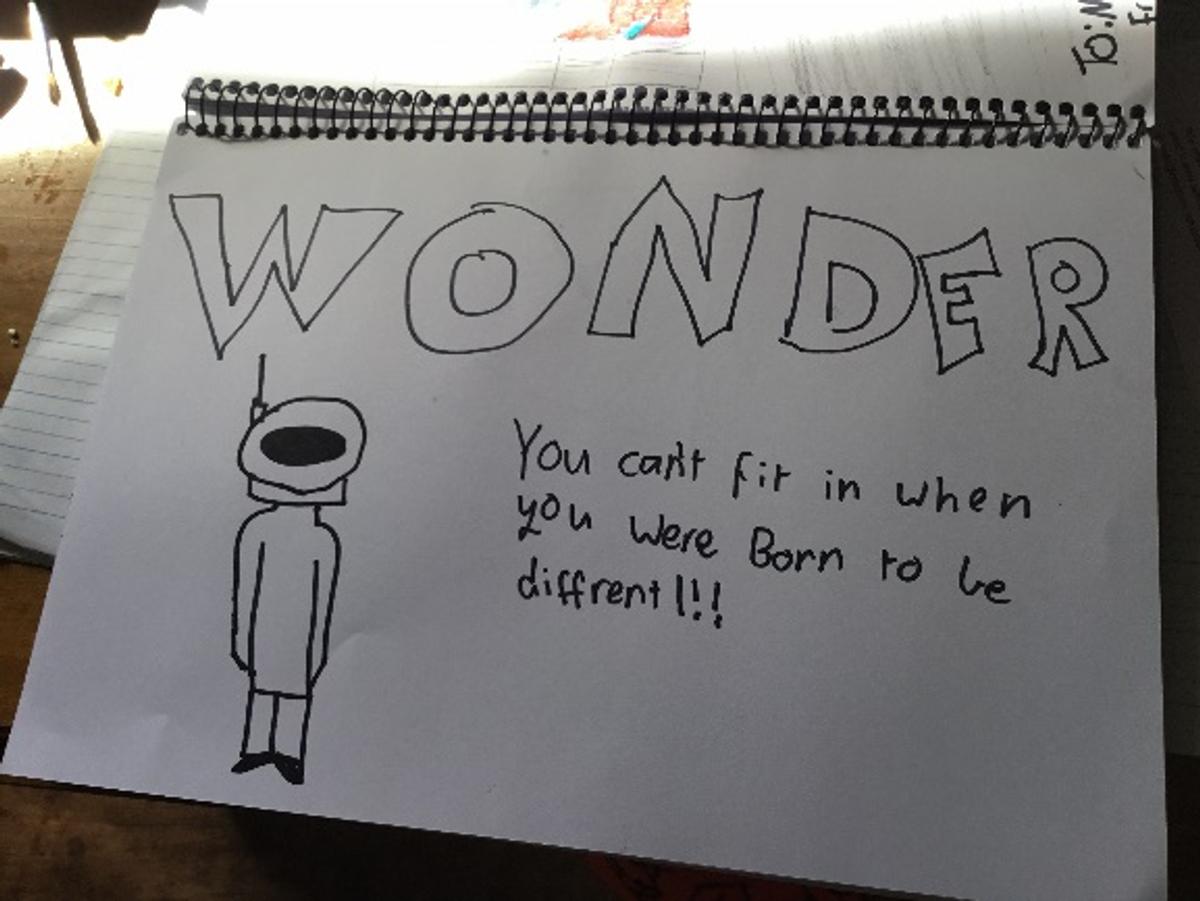 To:
WONDER
You can't fit in when
you were Born to be
diffrent!!!